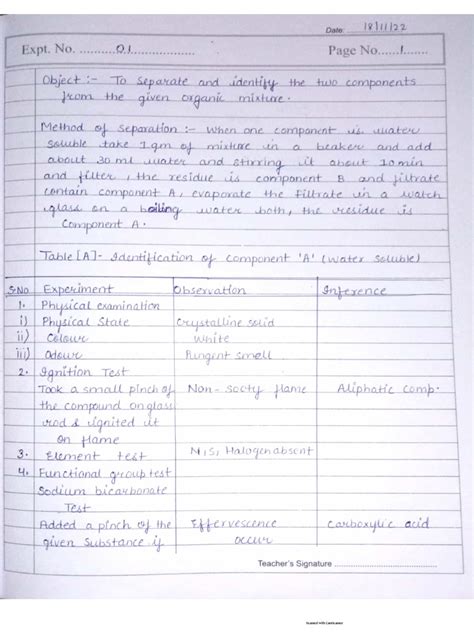 Date: 18/11/22
Expt. No. 01
Page No. 1
Object :- To separate and identify the two components
from the given organic mixture.
Method of separation :- When one component is water
soluble take 1 gm of mixture in a beaker and add
about 30 ml water and stirring it about 10 min
and filter, the residue is component B and filtrate
contain component A, evaporate the filtrate in a watch
glass on a boiling water bath, the residue is
Component A.
Table [A]- Identification of component 'A' (water soluble)
S.No Experiment Observation Inference
1. Physical examination
i) Physical State Crystalline solid
ii) Colour White
iii) Odour Pungent smell
2. Ignition Test
Took a small pinch of Non-sooty flame Aliphatic comp.
the compound on glass
rod & ignited it
on flame
3. Element test N, S, Halogen absent
4. Functional group test
Sodium bicarbonate
Test
Added a pinch of the Effervescence Carboxylic acid
given substance if occur
Teacher's Signature
Scanned with CamScanner